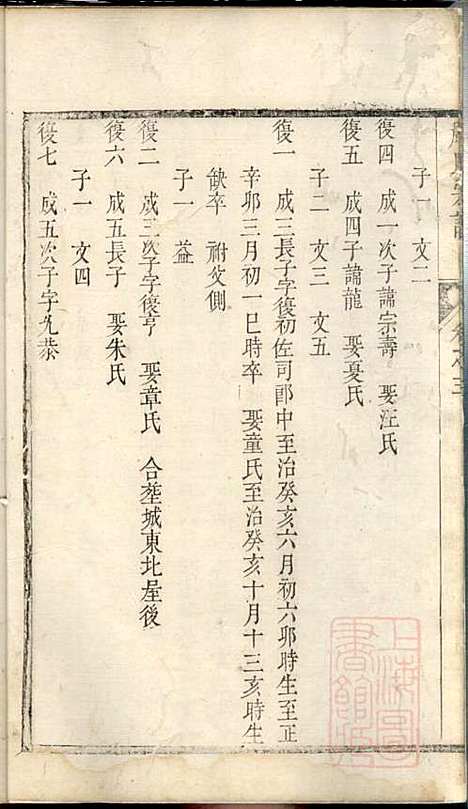 子一 文二
復四 成一次子諱宗壽 娶汪氏
復五 成四子諱龍 娶夏氏
子二 文三 文五
復一 成三長子字復初佐司郎中至治癸亥六月初六卯時生至正
辛卯三月初一巳時卒 娶童氏至治癸亥十月十三亥時生
缺卒 祔父側
子一 益
復二 成三次子字復亨 娶章氏 合塟城東北屋後
復六 成五長子 娶朱氏
子一 文四
復七 成五次子字允恭
上海圖書館藏